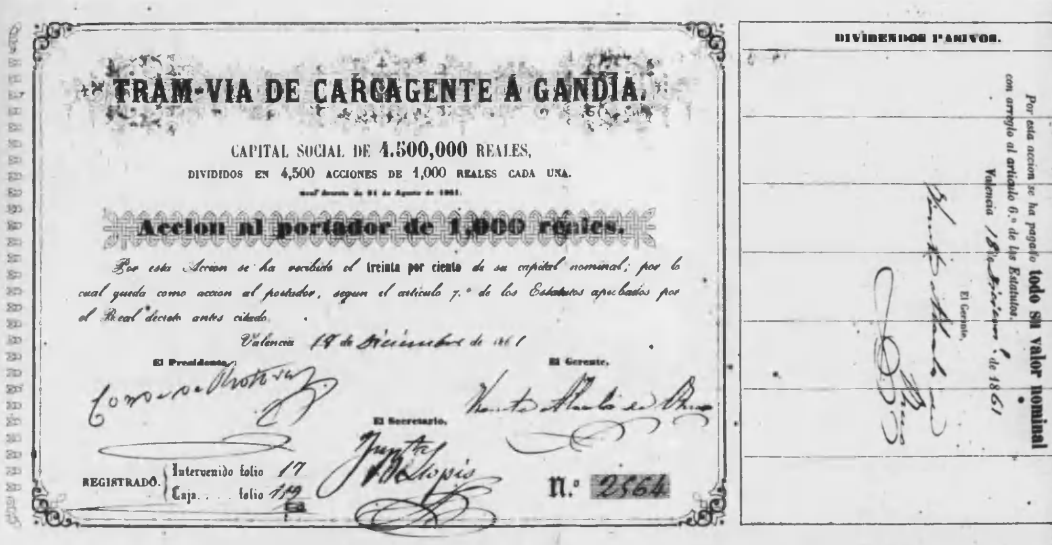 TRAM-VIA DE CARCAGENTE Á GANDÍA.
CAPITAL SOCIAL DE 4.500,000 REALES,
DIVIDIDOS EN 4,500 ACCIONES DE 1,000 REALES CADA UNA.
Real Decreto de 21 de Agosto de 1861.
Accion al portador de 1,000 reales.
Por esta Accion se ha recibido el treinta por ciento de su capital nominal; por lo
cual queda como accion al portador, segun el artículo 7.º de los Estatutos aprobados por
el Real decreto antes citado.
Valencia 18 de Diciembre de 1861
El Presidente,
El Gerente,
El Secretario,
REGISTRADO.
Intervenido folio 17
Caja.... folio
N.º 2564
DIVIDENDOS PASIVOS.
Por esta accion se ha pagado todo su valor nominal
con arreglo al artículo 6.º de los Estatutos.
Valencia 18 de Diciem.e de 1861
El Gerente,